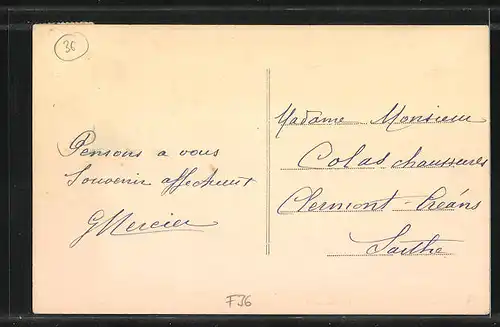 36
Pensons a vous
Souvenir affectueux
G Mercier
Madame Monsieur
Colas chaussures
Clermont-Créans
Sarthe
F36